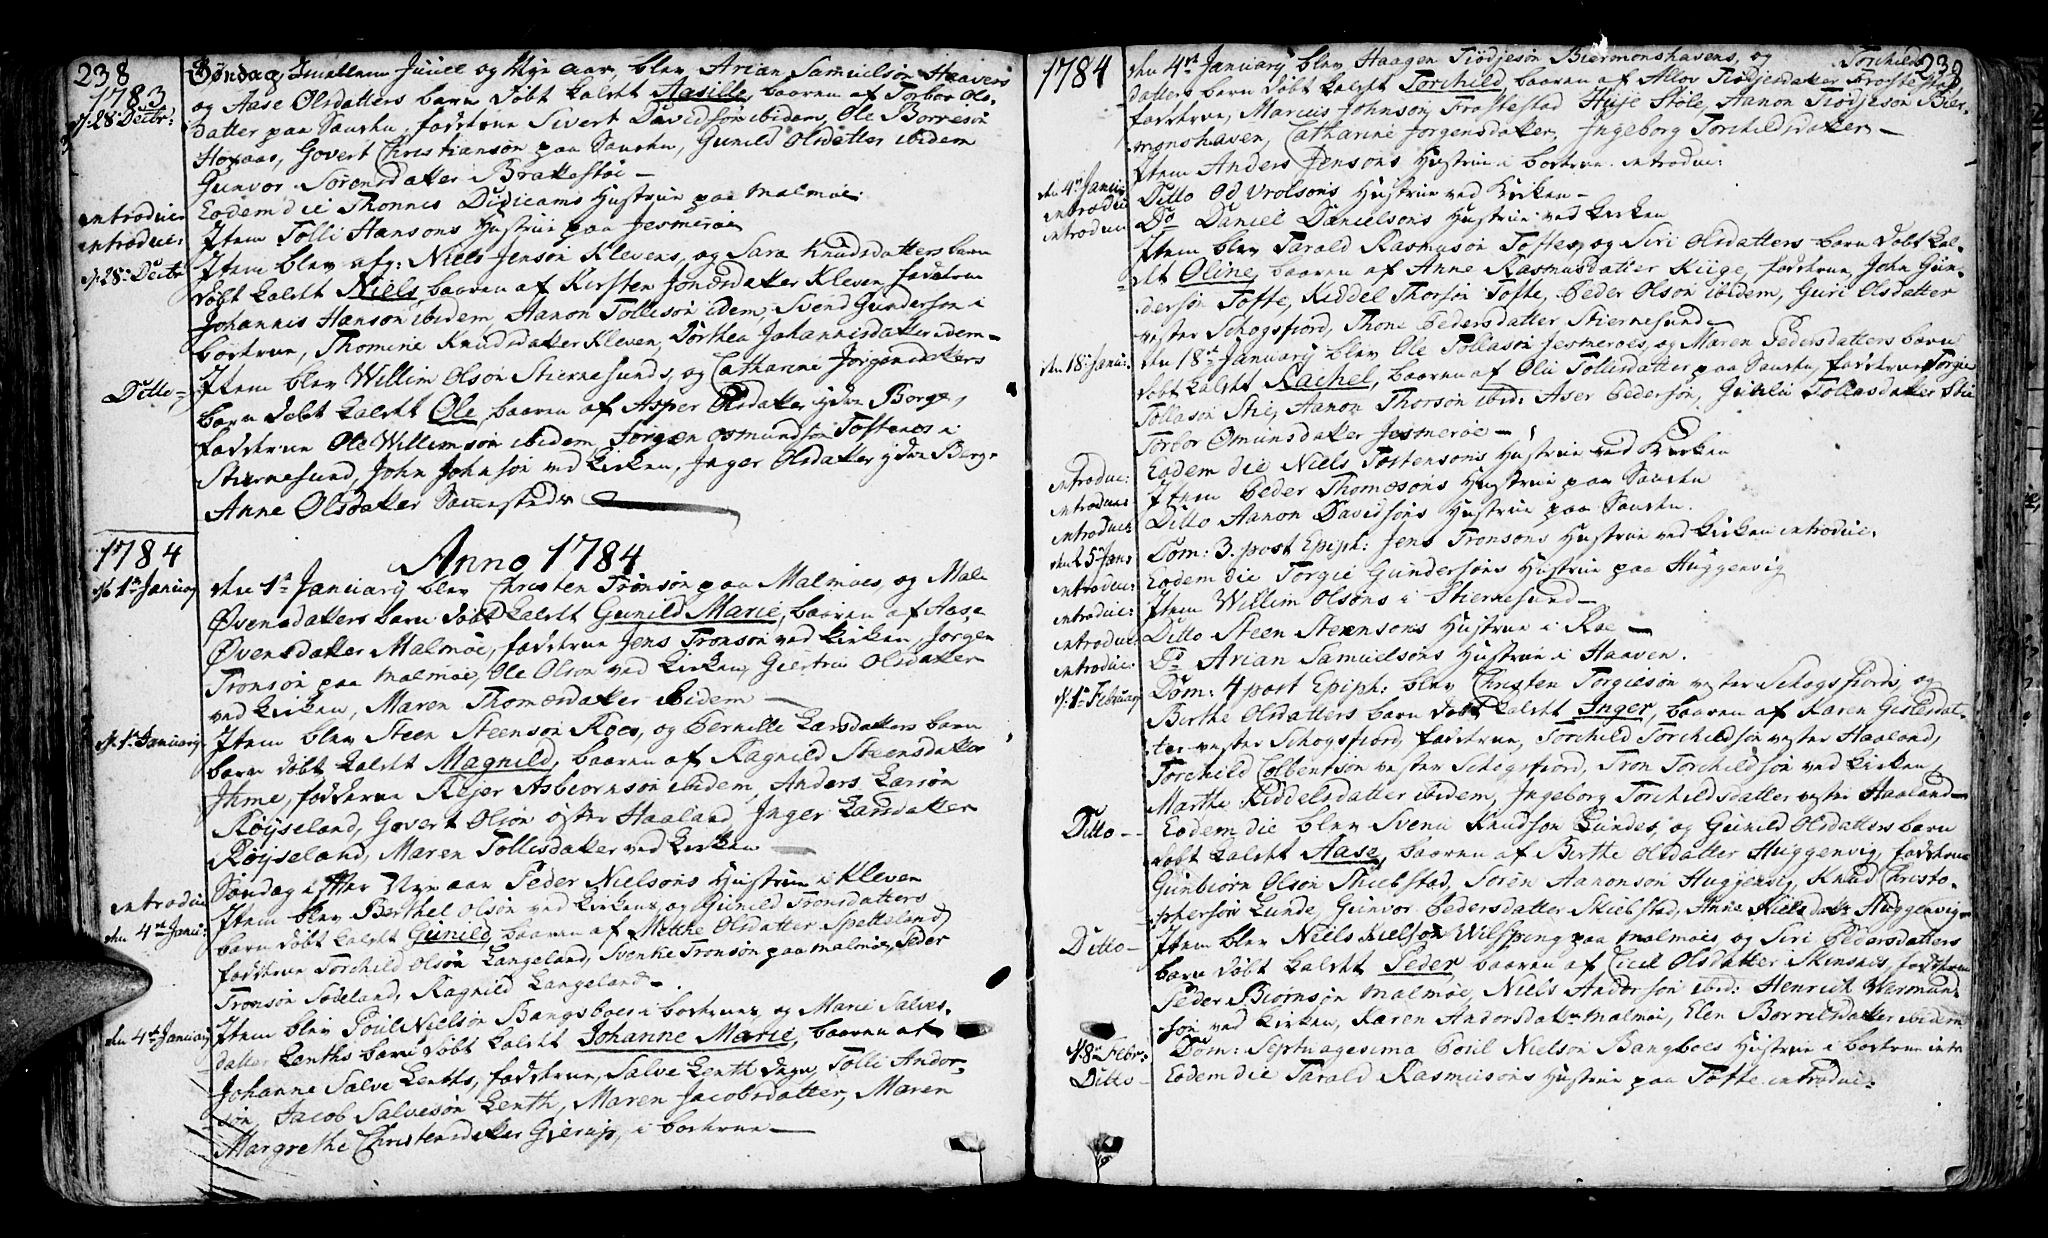 238
1783
d: 28 Decbr:
Søndag Imellem Juuel og Nye aar, blev Arian Samuelsøn Haavens
og Aase Olsdatters barn døbt kaldet Aasille, baaren af Torbor Ols-
datter paa Sanshu, fadderne Sivert Davidsøn ibidem, Ole Borresøn
Govert Christiansøn paa Sanshu, Gunild Olsdatter ibidem
Gunvor Sørensdatter Brakestøe –
introduc:
Eodem die Thonnes Didicams Hustrue paa Malmøe:
introduc:
Item Tolli Hansons Hustrue paa Jesmerøe
d: 28 Decbr
Item blev afg: Niels Jensøn Klevens, og Sara Knudsdatters barn
døbt kaldet Niels, baaren af Kirsten Jonasdatter Kleven, fadderne
Johannis Hanson ibidem, Aanon Tollisøn idem, Svend Gundersøn i
borterne, Thomine Knudsdatter Kleven, Dorthea Johannisdatter idem –
Ditto –
Item blev Willim Olsøn Stiernesunds, og Catharine Jorgensdatters
barn døbt kaldet Ole, baaren af Asper Olsdatter yden Borge,
fadderne Ole Willimsøn ibidem, Jørgen Osmundsøn Tostenes i
Stiernesund, John Johnsøn ved Kirken, Inger Olsdatter yden Berge
Anne Olsdatter
1784
Anno 1784
d: 1st January
den 1st January blev Christen Trønsøn paa Malmøes, og Mali
Øvensdatters barn døbt kaldet Gunild Marie, baaren af Aase
Øvensdatter Malmøe, fadderne Jens Tronsøn ved Kirken, Jorgen
Tronsøn paa Malmøe, Ole Olsøn ved Kirken, Giertru Olsdatter
ved Kirken, Maren Thomasdatter ibidem –
d: 1st January
Item blev Steen Steensøn Roes, og Pernille Larsdatters barn
barn døbt kaldet Magnild, baaren af Ragnild Steensdatter
Ihme, fadderne Rejer Asbiornsøn ibidem, Anders Larsøn
Røyseland, Govert Olsøn øster Haaland, Inger Larsdatter
Røyseland, Maren Tollisdatter ved Kirken –
introduc
Søndag efter Nye aar Peder Nielsons Hustrue i Kleven
den 4de Janu:
Item blev Berthel Olsøn ved Kirkens, og Gunild Tronsdatters
barn døbt kaldet Gunild, baaren af Mette Olsdatter Spetteland,
fadderne Torchild Olsøn Langeland, Svenke Tronsøn paa Malmøe, Peder
Tronsøn Sodeland, Ragnild Langeland –
den 4de January
Item blev Poul Nielsøn Bangsboes i borterne, og Marie Salves-
datter Lenths barn døbt kaldet Johanne Marie, baaren af
Johanne Salve Lenths, fadderne, Salve Lenth Tolli Ander-
søn Jacob Salvesøn Lenth, Maren Jacobsdatter, Maren
Margrethe Christensdatter Gierup, i borterne –
1784
238
den 4de January blev Haagen Tiødjesøn Biermonshavens, og Torchilds
datters barn døbt kaldet Torchild, baaren af Allov Tiødjesdatter Frostestad
fadderne, Marcus Johnsøn, Frostestad Huje Støle, Aanon Tiødjesøn Bier-
monshaven, Catharine Jorgensdatter, Ingeborg Torchildsdatter –
den 4de Janu
Item Anders Jensøns Hustrue i borterne introduc:
introduc
Ditto Od Vrolsøns Hustrue ved Kirken –
introduc
Do Daniel Danielsøns Hustrue ved Kirken
Item blev Tarald Rasmusøn Toftes, og Siri Olsdatters barn døbt kal-
det Oline, baaren af Anne Rasmusdatter Kuge, fadderne, John Gun-
dersøn Tofte, Kiddel Thorsøn Tofte, Peder Olsøn ibidem, Guri Olsdatter
vester Schogsfiord, Thone Pedersdatter Stiernesund –
den 18 Janu:
den 18de January blev Ole Tollasøn Jesmerøes, og Maren Pedersdatters barn
døbt kaldet Rachel, baaren af Oli Tollisdatter paa Sanshu, fadderne Torgie
Tollason Stie, Aanon Thorsøn ibid: Aser Pedersøn, Gunlu Tollasdatter Stie
Torbor Omunsdatter Jesmerøe –
introduc:
Eodem die Niels Tostensøns Hustrue ved Kirken
introduc
Item Peder Thomesøns Hustrue paa Sanshu
introduc
Ditto Aanon Davidsøns Hustrue paa Sanshu.
den 25 Jan:
Dom: 3. post Epiph: Jens Tronsøns Hustrue ved Kirken introduc:
introduc:
Eodem die Torgie Gundersøns Hustrue paa Huggenvig
introduc:
Item Willim Olsøns i Stiernesund –
introduc:
Ditto Steen Steensøns Hustrue i Roe –
introduc:
Do Arian Samuelsøns Hustrue i Haaven.
d: 1st February
Dom: 4 post Epiph: blev Christen Torgiesøn vester Schogsfiords og
Berthe Olsdatters barn døbt kaldet Inger, baaren af Karen Gislesdat-
ter vester Schogsfiord, fadderne, Torchild Torchildsøn vester Haaland,
Torchild Colbentsøn vester Schogsfiord, Tron Torchildsøn ved Kirken,
Marthe Kiddelsdatter ibidem, Ingeborg Torchildsdatter vester Haaland –
Ditto –
Eodem die blev Svenu Knudsøn Lundes, og Gunild Olsdatters barn
døbt kaldet Aase, baaren af Berthe Olsdatter Huggenvig, fadderne
Gunbiørn Olsøn Skiebstad, Søren Aanonsøn Huggenvig, Knud Christo-
phersøn Lunde, Gunvor Pedersdatter Skiebstad, Anne Nielsdatter Huggenvig
Ditto –
Item blev Niels Nielsøn Wilsping paa Malmøes, og Siri Pedersdatters
barn døbt kaldet Peder, baaren af Cicil Olsdatter Skinsnes, fadderne
Peder Biørnsøn Malmøe, Niels Andersøn ibid: Henrik Warmund-
søn ved Kirken, Karen Andersdatr Malmøe, Elen Borrilsdatter ibidem
d: 8 Febr:
Dom: Septuagesima Poul Nielsøn Bangboes Hustrue i borterne intr
Ditto –
Eodem die Tarald Rasmusøns Hustrue paa Tofte introduc: